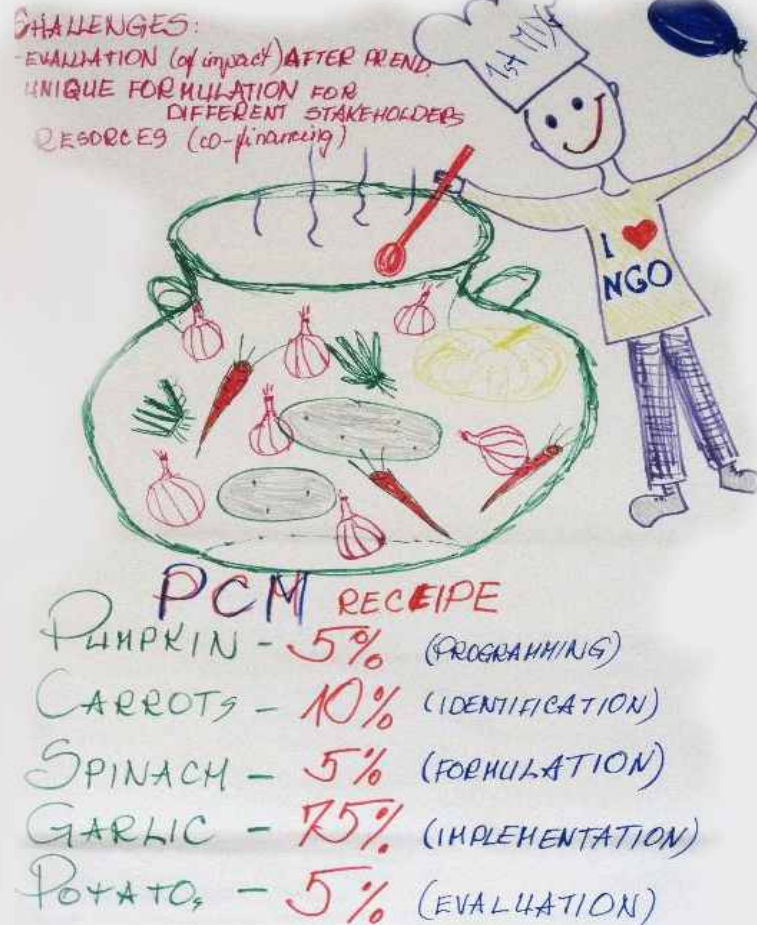 CHALLENGES:
-EVALUATION (of impact) AFTER PR END
UNIQUE FORMULATION FOR
DIFFERENT STAKEHOLDERS
RESORCES (co-financing)
I ❤ NGO
PCM RECEIPE
PUMPKIN - 5% (PROGRAMMING)
CARROTS - 10% (IDENTIFICATION)
SPINACH - 5% (FORMULATION)
GARLIC - 75% (IMPLEMENTATION)
POTATO, - 5% (EVALUATION)